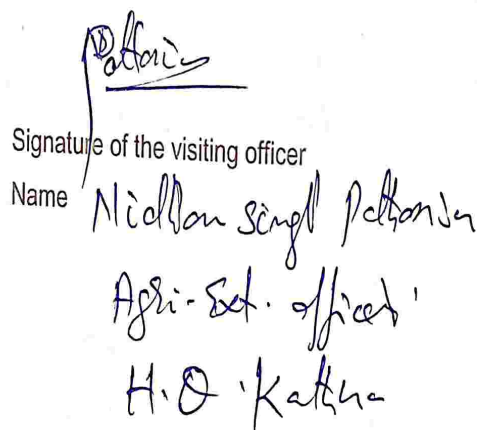 Signature of the visiting officer
Name Nidhan Singh Pathania
Agri-Ext. officer
H.Q. Kathua